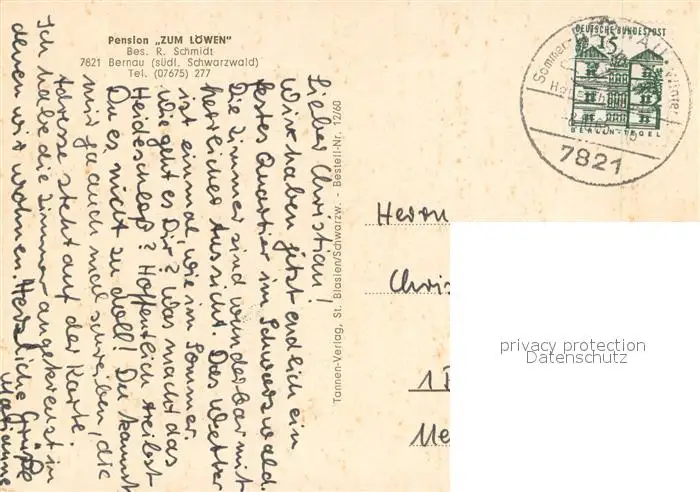 Pension „ZUM LÖWEN"
Bes. R. Schmidt
7621 Bernau (südl. Schwarzwald)
Tel. (07675) 277
Lieber Christian!
Wir haben jetzt endlich ein
festes Quartier im Schwarzwald.
Die Zimmer sind wunderbar mit
herrlicher Aussicht. Das Wetter
ist einmal, wie im Sommer.
Wie geht es Dir? Was macht das
Heideschloß? Hoffentlich treibst
Du es nicht zu doll! Du kannst
mir ja auch mal schreiben, die
Adresse steht auf der Karte.
Ich habe die Zimmer angekreuzt in
denen wir wohnen. Herzliche Grüße
Marianne
Tannen-Verlag, St. Blasien/Schwarzw. - Bestell-Nr. 12/60
DEUTSCHE BUNDESPOST
15
BERLIN-TEGEL
Sommer-
Winter
7821
Herrn
Chris
1
Me
privacy protection
Datenschutz